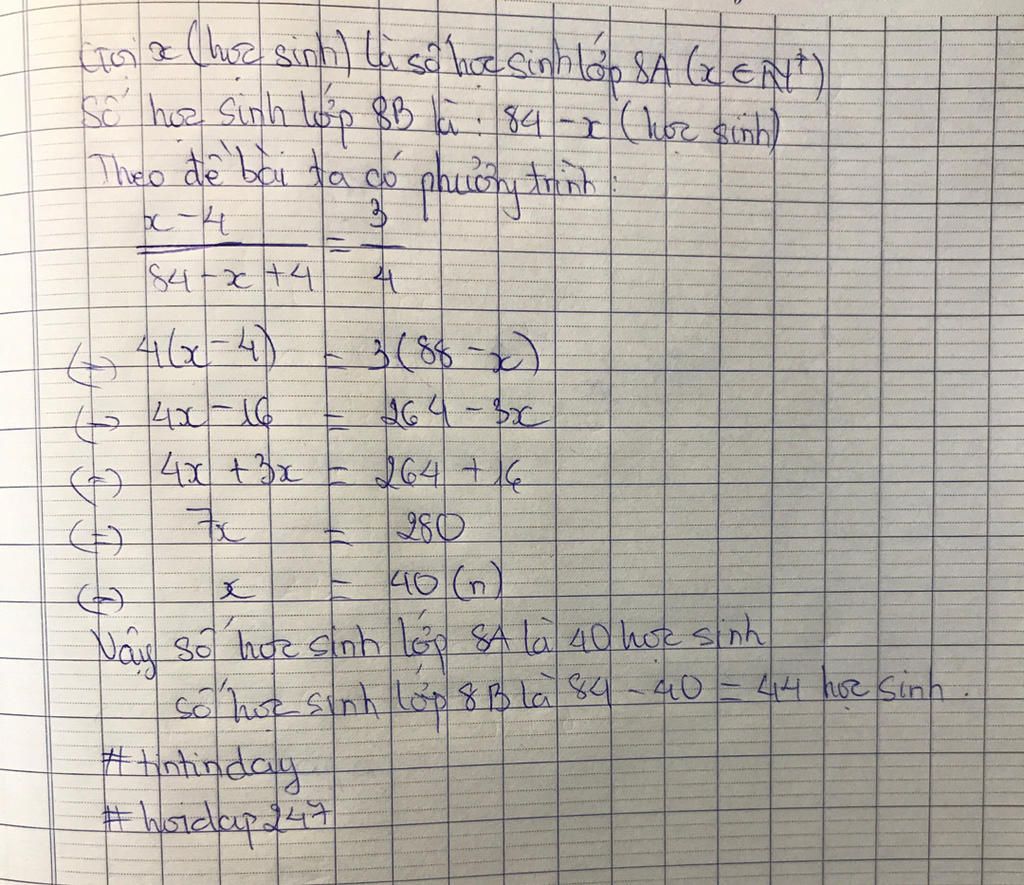 Gọi x (học sinh) là số học sinh lớp 8A (x ∈ N*)
Số học sinh lớp 8B là : 84 - x (học sinh)
Theo đề bài ta có phương trình :
x - 4 / 84 - x + 4 = 3 / 4
(=) 4(x - 4) = 3(88 - x)
(=) 4x - 16 = 264 - 3x
(=) 4x + 3x = 264 + 16
(=) 7x = 280
(=) x = 40 (n)
Vậy số học sinh lớp 8A là 40 học sinh
số học sinh lớp 8B là 84 - 40 = 44 học sinh .
#tintinday
#hoidap247